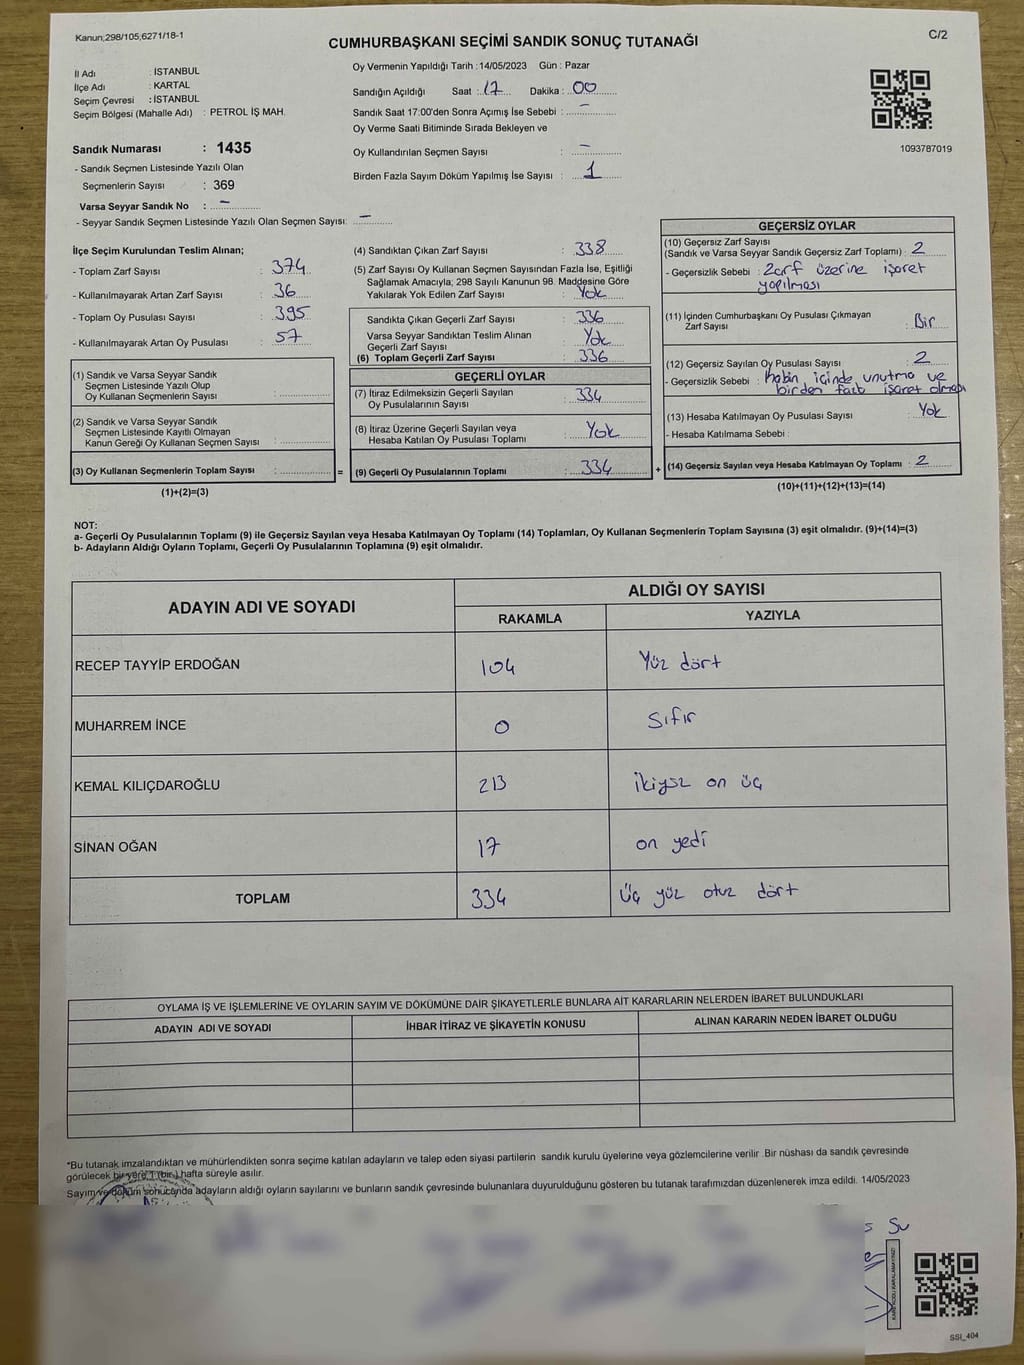 Kanun;298/105,6271/18-1
CUMHURBAŞKANI SEÇİMİ SANDIK SONUÇ TUTANAĞI
C/2
Oy Vermenin Yapıldığı Tarih :14/05/2023 Gün : Pazar
İl Adı : İSTANBUL
İlçe Adı : KARTAL
Seçim Çevresi : İSTANBUL
Seçim Bölgesi (Mahalle Adı) : PETROL İŞ MAH.
Sandık Numarası : 1435
- Sandık Seçmen Listesinde Yazılı Olan
Seçmenlerin Sayısı : 369
Varsa Seyyar Sandık No : –
- Seyyar Sandık Seçmen Listesinde Yazılı Olan Seçmen Sayısı: –
Sandığın Açıldığı Saat : 17 Dakika : 00
Sandık Saat 17:00'den Sonra Açımış İse Sebebi : –
Oy Verme Saati Bitiminde Sırada Bekleyen ve
Oy Kullandırılan Seçmen Sayısı : –
Birden Fazla Sayım Döküm Yapılmış İse Sayısı : 1
1093787019
İlçe Seçim Kurulundan Teslim Alınan;
- Toplam Zarf Sayısı : 374
- Kullanılmayarak Artan Zarf Sayısı : 36
- Toplam Oy Pusulası Sayısı : 395
- Kullanılmayarak Artan Oy Pusulası : 57
(1) Sandık ve Varsa Seyyar Sandık
Seçmen Listesinde Yazılı Olup
Oy Kullanan Seçmenlerin Sayısı :
(2) Sandık ve Varsa Seyyar Sandık
Seçmen Listesinde Kayıtlı Olmayan
Kanun Gereği Oy Kullanan Seçmen Sayısı :
(3) Oy Kullanan Seçmenlerin Toplam Sayısı : =
(1)+(2)=(3)
(4) Sandıktan Çıkan Zarf Sayısı : 338
(5) Zarf Sayısı Oy Kullanan Seçmen Sayısından Fazla İse, Eşitliği
Sağlamak Amacıyla; 298 Sayılı Kanunun 98. Maddesine Göre
Yakılarak Yok Edilen Zarf Sayısı : Yok
Sandıkta Çıkan Geçerli Zarf Sayısı : 336
Varsa Seyyar Sandıktan Teslim Alınan
Geçerli Zarf Sayısı : Yok
(6) Toplam Geçerli Zarf Sayısı : 336
GEÇERLİ OYLAR
(7) İtiraz Edilmeksizin Geçerli Sayılan
Oy Pusulalarının Sayısı : 334
(8) İtiraz Üzerine Geçerli Sayılan veya
Hesaba Katılan Oy Pusulası Toplamı : Yok
(9) Geçerli Oy Pusulalarının Toplamı : 334 +
GEÇERSİZ OYLAR
(10) Geçersiz Zarf Sayısı
(Sandık ve Varsa Seyyar Sandık Geçersiz Zarf Toplamı) : 2
- Geçersizlik Sebebi : Zarf üzerine işaret
yapılması
(11) İçinden Cumhurbaşkanı Oy Pusulası Çıkmayan
Zarf Sayısı : Bir
(12) Geçersiz Sayılan Oy Pusulası Sayısı : 2
- Geçersizlik Sebebi : Kabin içinde unutma ve
birden fazla işaret olması
(13) Hesaba Katılmayan Oy Pusulası Sayısı : Yok
- Hesaba Katılmama Sebebi :
(14) Geçersiz Sayılan veya Hesaba Katılmayan Oy Toplamı : 2
(10)+(11)+(12)+(13)=(14)
NOT:
a- Geçerli Oy Pusulalarının Toplamı (9) ile Geçersiz Sayılan veya Hesaba Katılmayan Oy Toplamı (14) Toplamları, Oy Kullanan Seçmenlerin Toplam Sayısına (3) eşit olmalıdır. (9)+(14)=(3)
b- Adayların Aldığı Oyların Toplamı, Geçerli Oy Pusulalarının Toplamına (9) eşit olmalıdır.
ADAYIN ADI VE SOYADI
ALDIĞI OY SAYISI
RAKAMLA YAZIYLA
RECEP TAYYİP ERDOĞAN 104 Yüz dört
MUHARREM İNCE 0 Sıfır
KEMAL KILIÇDAROĞLU 213 ikiyüz on üç
SİNAN OĞAN 17 on yedi
TOPLAM 334 üç yüz otuz dört
OYLAMA İŞ VE İŞLEMLERİNE VE OYLARIN SAYIM VE DÖKÜMÜNE DAİR ŞİKAYETLERLE BUNLARA AİT KARARLARIN NELERDEN İBARET BULUNDUKLARI
ADAYIN ADI VE SOYADI İHBAR İTİRAZ VE ŞİKAYETİN KONUSU ALINAN KARARIN NEDEN İBARET OLDUĞU
*Bu tutanak imzalandıktan ve mühürlendikten sonra seçime katılan adayların ve talep eden siyasi partilerin sandık kurulu üyelerine veya gözlemcilerine verilir .Bir nüshası da sandık çevresinde
görülecek bir yere 1 (bir ) hafta süreyle asılır.
Sayım ve döküm sonucunda adayların aldığı oyların sayılarını ve bunların sandık çevresinde bulunanlara duyurulduğunu gösteren bu tutanak tarafımızdan düzenlenerek imza edildi. 14/05/2023
KARE KODU KARALAMAYINIZ!
SSI_404